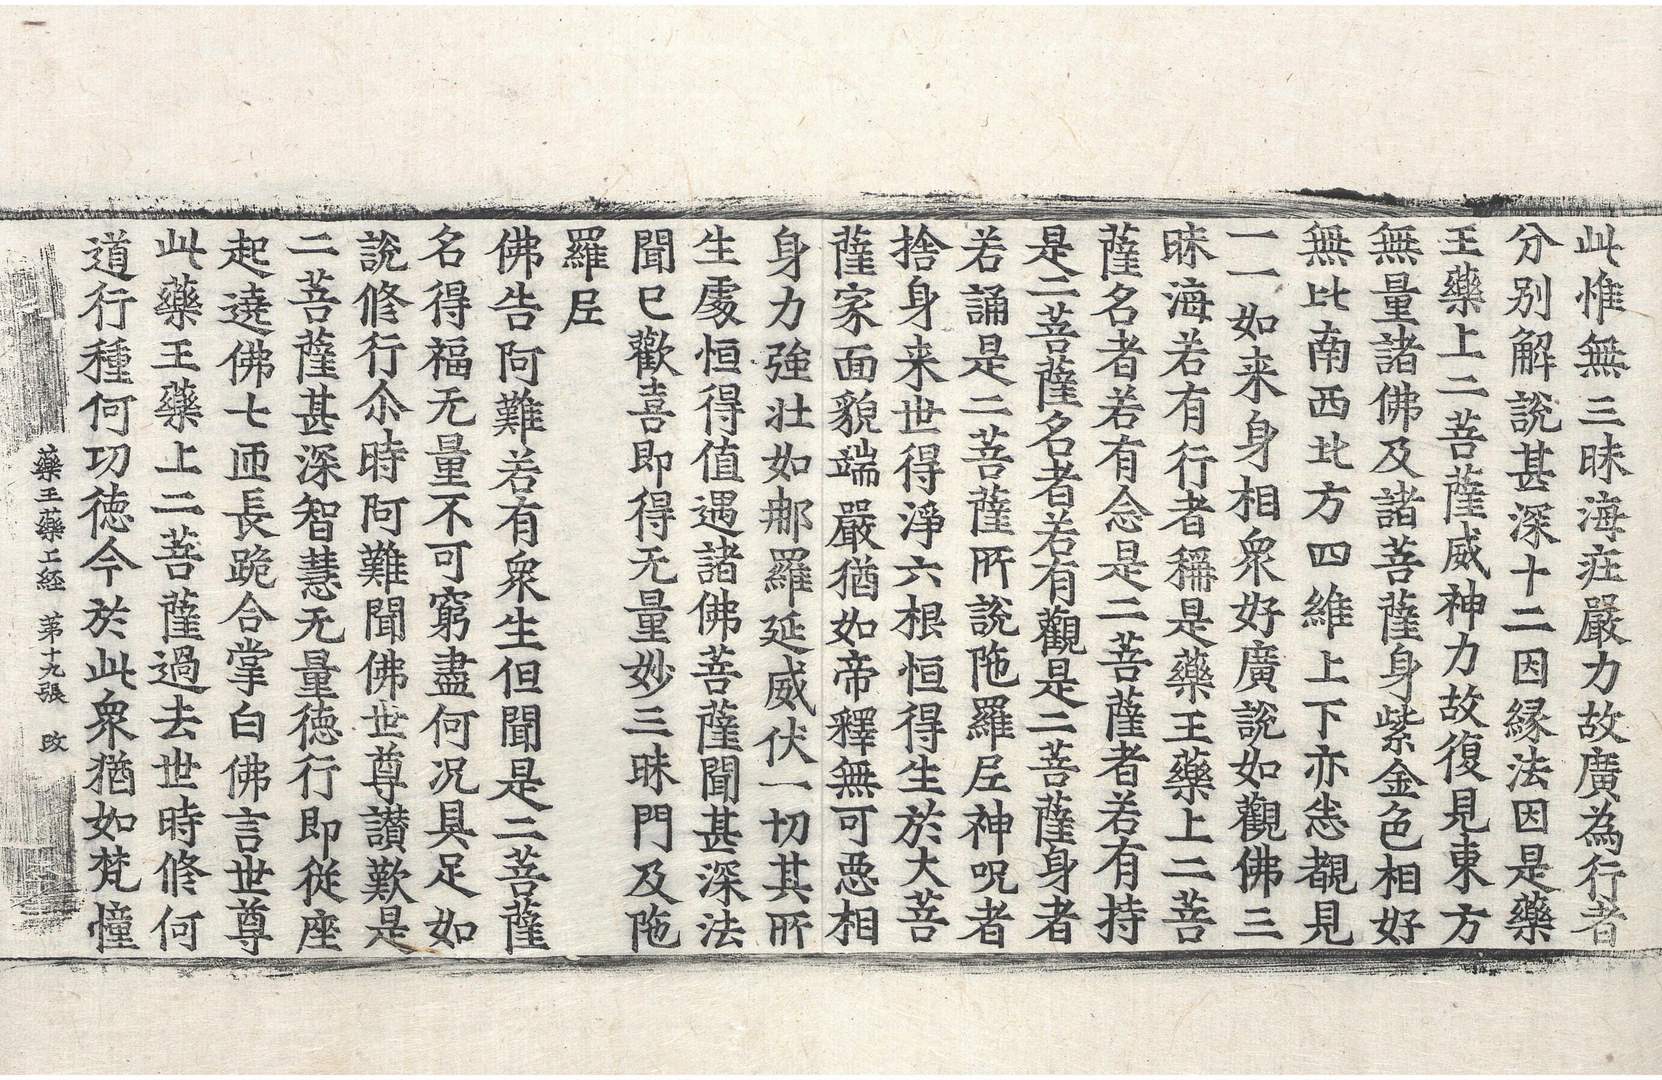 此惟無三昧海莊嚴力故廣為行者
分別解說甚深十二因縁法因是藥
王藥上二菩薩威神力故復見東方
無量諸佛及諸菩薩身紫金色相好
無比南西北方四維上下亦悉覩見
一一如来身相衆好廣說如觀佛三
昧海若有行者稱是藥王藥上二菩
薩名者若有念是二菩薩者若有持
是二菩薩名者若有觀是二菩薩身者
若誦是二菩薩所說陁羅尼神呪者
捨身来世得淨六根恒得生於大菩
薩家面貌端嚴猶如帝釋無可惡相
身力強壯如那羅延威伏一切其所
生處恒得值遇諸佛菩薩聞甚深法
聞已歡喜即得无量妙三昧門及陁
羅尼
佛告阿難若有衆生但聞是二菩薩
名得福无量不可窮盡何况具足如
說修行尒時阿難聞佛世尊讃歎是
二菩薩甚深智慧无量德行即従座
起遶佛七匝長跪合掌白佛言世尊
此藥王藥上二菩薩過去世時修何
道行種何功德今於此衆猶如梵幢
藥王藥上経 第十九張 改